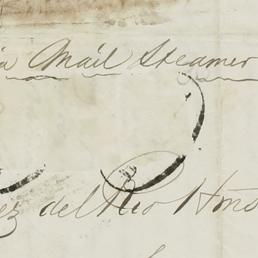 a Mail Steamer
ez del Rio Hnos